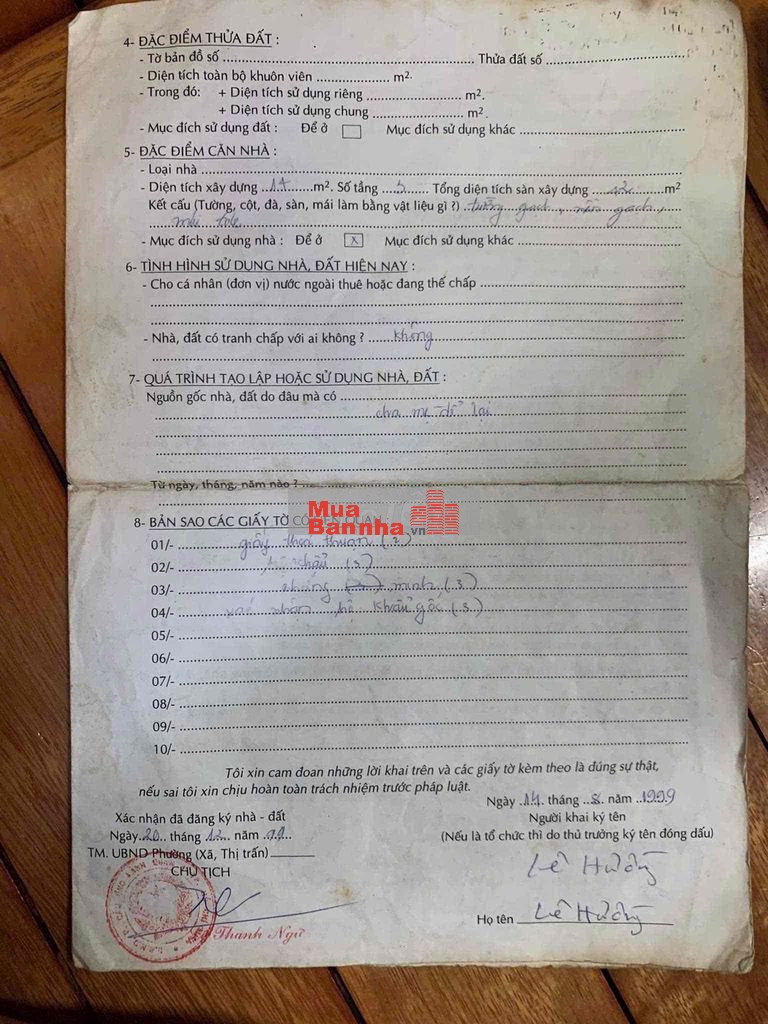 4- ĐẶC ĐIỂM THỬA ĐẤT :
- Tờ bản đồ số ........ Thửa đất số ........
- Diện tích toàn bộ khuôn viên ........ m2.
- Trong đó: + Diện tích sử dụng riêng ........ m2.
+ Diện tích sử dụng chung ........ m2.
- Mục đích sử dụng đất : Để ở ☐ Mục đích sử dụng khác ........
5- ĐẶC ĐIỂM CĂN NHÀ :
- Loại nhà ........
- Diện tích xây dựng ........ m2. Số tầng ........ Tổng diện tích sàn xây dựng ........ m2
Kết cấu (Tường, cột, đà, sàn, mái làm bằng vật liệu gì ?) tường gạch, nền gạch,
mái tole
- Mục đích sử dụng nhà : Để ở [X] Mục đích sử dụng khác ........
6- TÌNH HÌNH SỬ DỤNG NHÀ, ĐẤT HIỆN NAY :
- Cho cá nhân (đơn vị) nước ngoài thuê hoặc đang thế chấp ........
- Nhà, đất có tranh chấp với ai không ? không
7- QUÁ TRÌNH TẠO LẬP HOẶC SỬ DỤNG NHÀ, ĐẤT :
Nguồn gốc nhà, đất do đâu mà có ........
cha mẹ để lại
Từ ngày, tháng, năm nào ? ........
8- BẢN SAO CÁC GIẤY TỜ CÓ LIÊN QUAN
Mua
Bannha.vn
01/- giấy thỏa thuận (3)
02/- hộ khẩu (3)
03/- chứng minh (3)
04/- xác nhận hộ khẩu gốc (3)
05/-
06/-
07/-
08/-
09/-
10/-
Tôi xin cam đoan những lời khai trên và các giấy tờ kèm theo là đúng sự thật,
nếu sai tôi xin chịu hoàn toàn trách nhiệm trước pháp luật.
Ngày 14 tháng 8 năm 1999
Xác nhận đã đăng ký nhà - đất
Người khai ký tên
Ngày 20 tháng 12 năm 99
(Nếu là tổ chức thì do thủ trưởng ký tên đóng dấu)
TM. UBND Phường (Xã, Thị trấn)
CHỦ TỊCH
Lê Hường
Họ tên Lê Hường
Thanh Ngữ